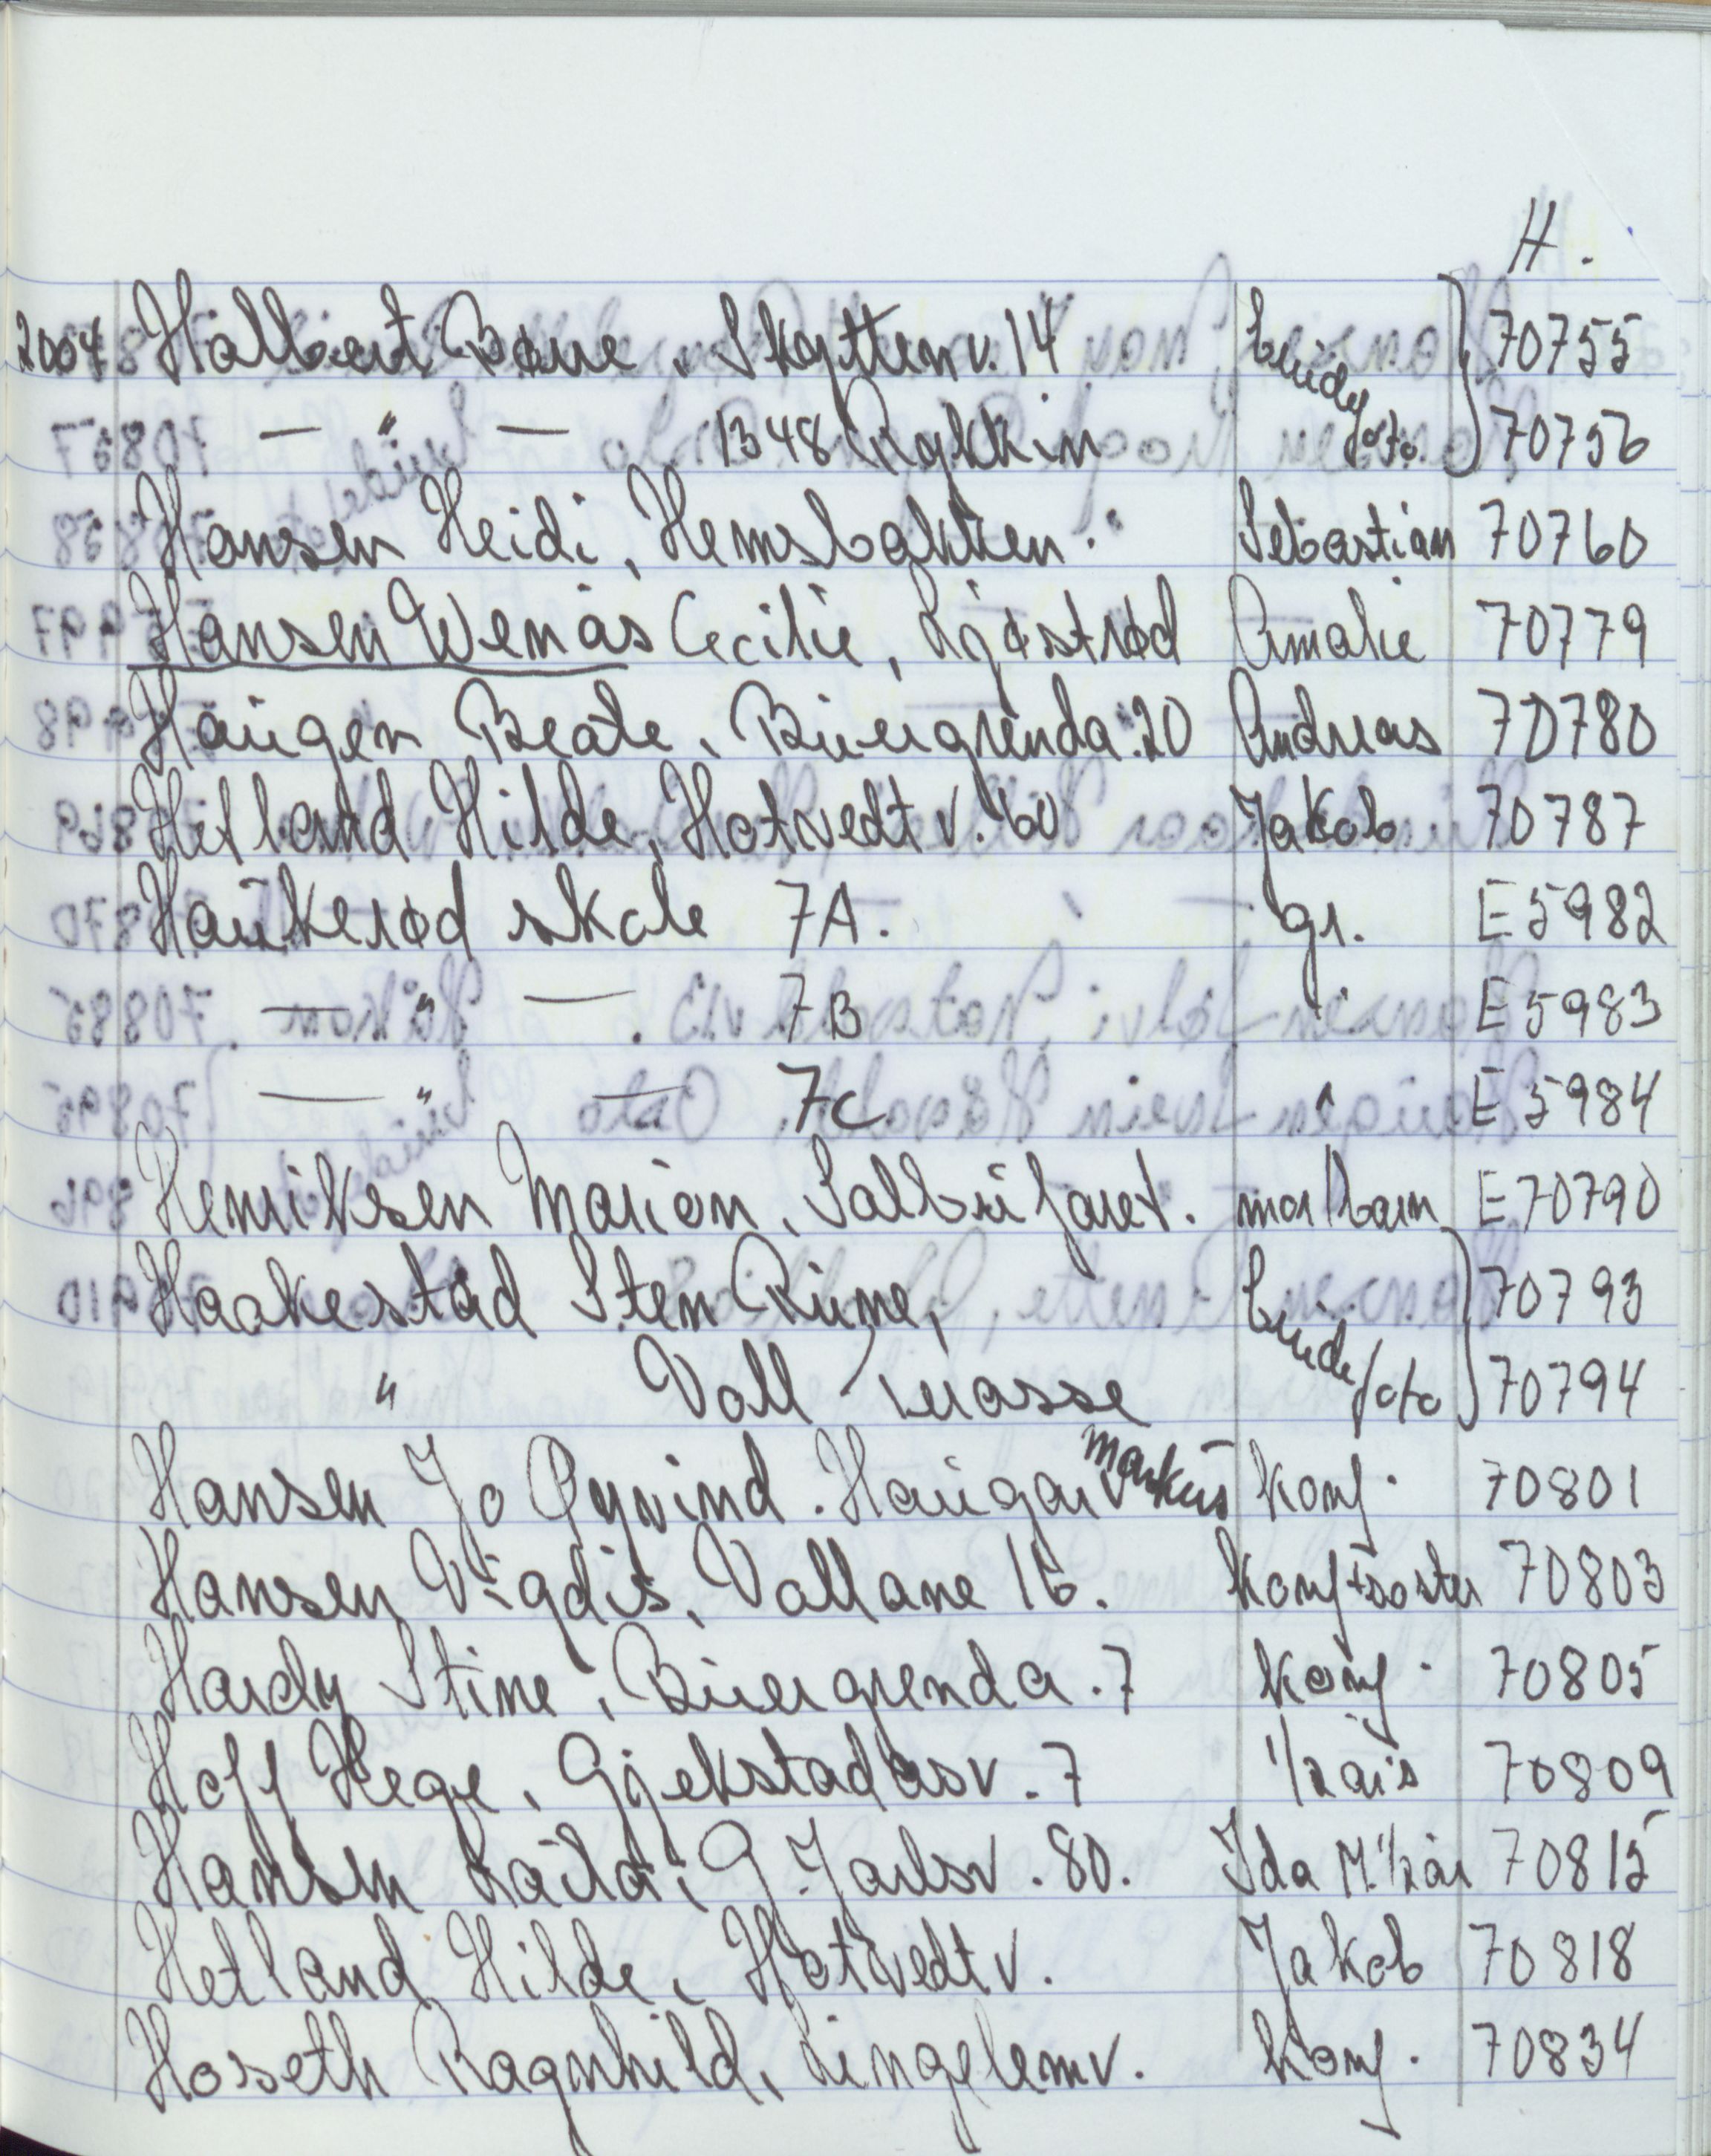 H.
2004 Halbert Børre, Skytten v. 14 brude 70755
— " — 1348 Rykkin foto. 70756
Hansen Heidi, Hemsbakken. Sebastian 70760
Hansen Wenås Cecilie, Ljøstrød Amalie 70779
Haugen Beate, Buergrenda 20 Andreas 70780
Hetland Hilde, Hotvedt v. 60 Jakob 70787
Haukerød skole 7A. gr. E5982
— " — 7B " E5983
— " — 7C " E5984
Henriksen Marion, Salbufaret. mor/barn E70790
Haakestad Sten Rune, brude 70793
" Voll terasse foto 70794
Hansen Jo Øyvind. Haugar v Markus konf. 70801
Hansen Vigdis, Vollane 16. konf+søster 70803
Hardy Stine, Buergrenda. 7 konf. 70805
Hoff Hege, Gjekstadåsv. 7 1/2 års 70809
Hansen Laila, G. Jarlsv. 80. Ida M. 1/2 år 70815
Hetland Hilde, Hotvedt v. Jakob 70818
Hoseth Ragnhild, Lingelemv. konf. 70834